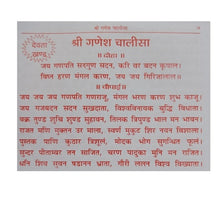 श्री गणेश चालीसा
देवता
खण्ड
श्री गणेश चालीसा
॥ दोहा ॥
जय गणपति सदगुण सदन, करि वर बदन कृपाल।
विघ्न हरण मंगल करण, जय जय गिरिजालाल॥
॥ चौपाई ॥
जय जय जय गणपति गणराजू, मंगल भरण करण शुभ काजू।
जय गजबदन सदन सुखदाता, विश्वविनायक बुद्धि विधाता।
वक्र तुण्ड शुचि शुण्ड सुहावन, तिलक त्रिपुण्ड भाल मन भावन।
राजत मणि मुक्तन उर माला, स्वर्ण मुकुट शिर नयन विशाला।
पुस्तक पाणि कुठार त्रिशूलं, मोदक भोग सुगन्धित फूलं।
सुन्दर पीताम्बर तन साजित, चरण पादुका मुनि मन राजित।
धनि शिव सुवन षडानन भ्राता, गौरी ललन विश्व विख्याता।